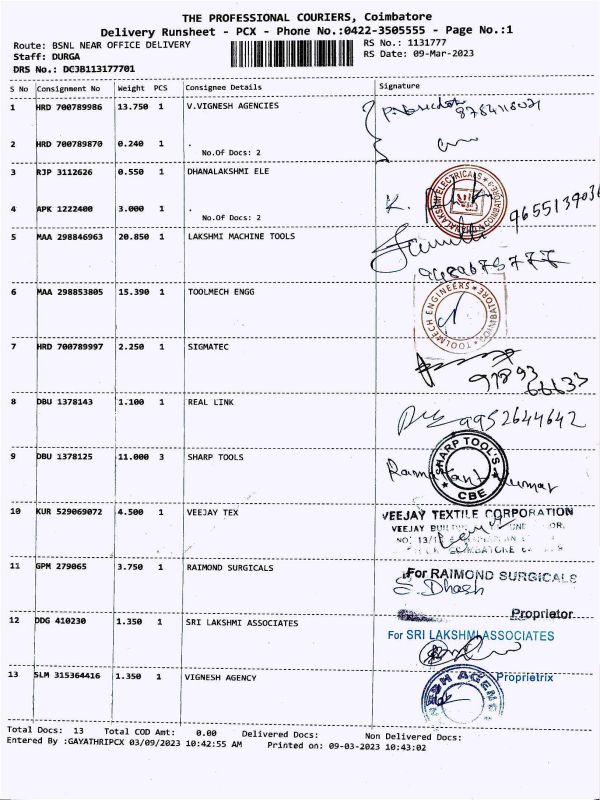 THE PROFESSIONAL COURIERS, Coimbatore
Delivery Runsheet - PCX - Phone No.:0422-3505555 - Page No.:1
Route: BSNL NEAR OFFICE DELIVERY
RS No.: 1131777
Staff: DURGA
RS Date: 09-Mar-2023
DRS No.: DCJB113177701
S No Consignment No Weight PCS Consignee Details Signature
1 HRD 700789986 13.750 1 V.VIGNESH AGENCIES
2 HRD 700789870 0.240 1 .
No.Of Docs: 2
3 RJP 3112626 0.550 1 DHANALAKSHMI ELE
DHANALAKSHMI ELECTRICALS COIMBATORE
4 APK 1222400 3.000 1 .
No.Of Docs: 2
5 MAA 298846963 20.850 1 LAKSHMI MACHINE TOOLS
6 MAA 298853805 15.390 1 TOOLMECH ENGG
TOOLMECH ENGINEERS COIMBATORE
7 HRD 700789997 2.250 1 SIGMATEC
97893
66633
8 DBU 1378143 1.100 1 REAL LINK
9952644642
9 DBU 1378125 11.000 3 SHARP TOOLS
SHARP TOOL'S
CBE
10 KUR 529069072 4.500 1 VEEJAY TEX
VEEJAY TEXTILE CORPORATION
VEEJAY
11 GPM 279065 3.750 1 RAIMOND SURGICALS
For RAIMOND SURGICALS
S. Dhash
Proprietor
12 DDG 410230 1.350 1 SRI LAKSHMI ASSOCIATES
For SRI LAKSHMI ASSOCIATES
Proprietrix
13 SLM 315364416 1.350 1 VIGNESH AGENCY
Total Docs: 13 Total COD Amt: 0.00 Delivered Docs: Non Delivered Docs:
Entered By :GAYATHRIPCX 03/09/2023 10:42:55 AM Printed on: 09-03-2023 10:43:02